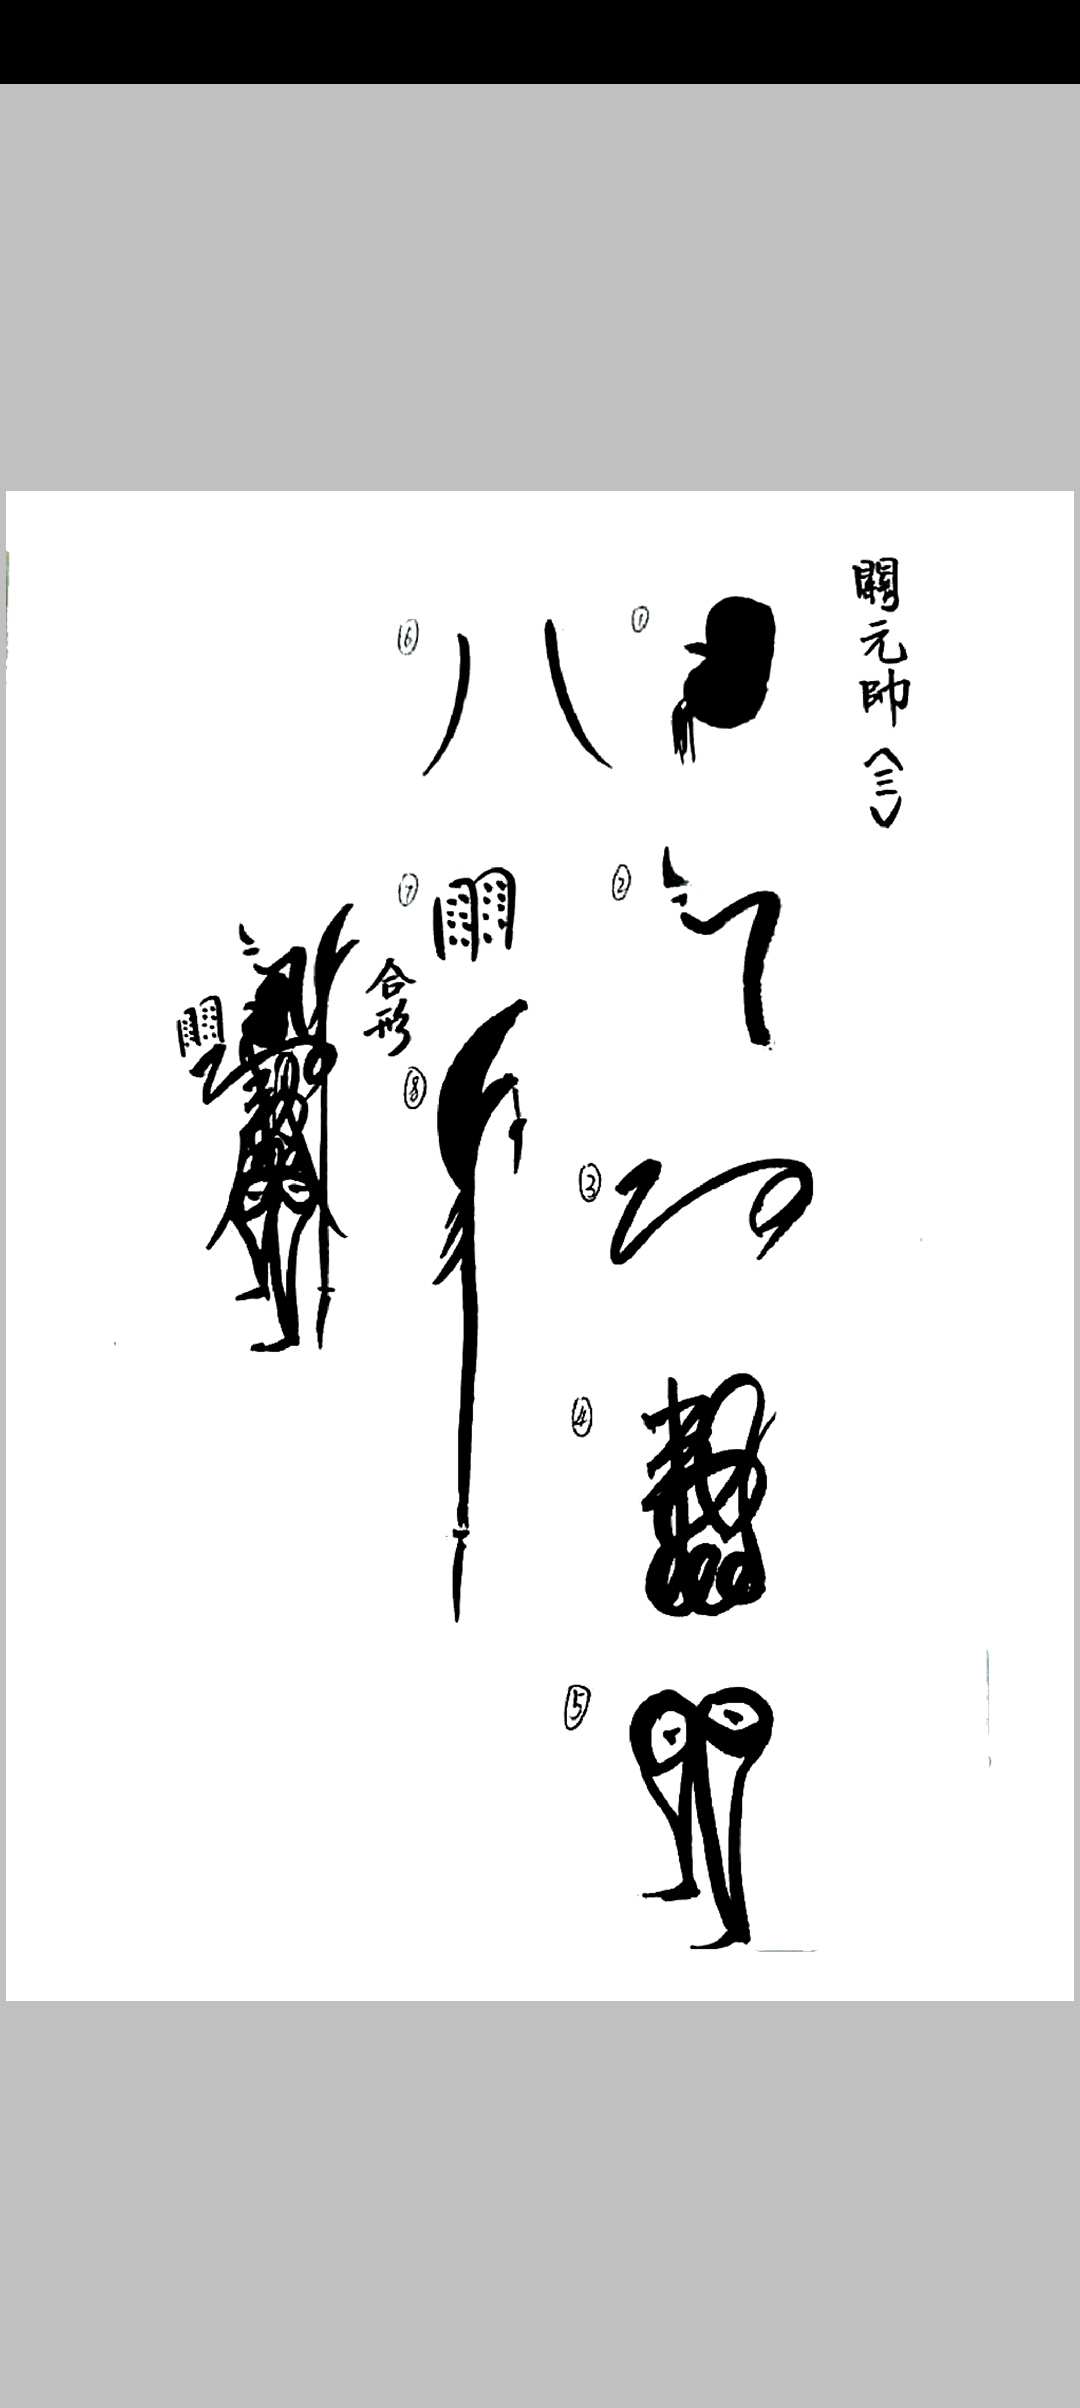 關元帥〈三〉
①
②
③
④
⑤
⑥
⑦
⑧
合形